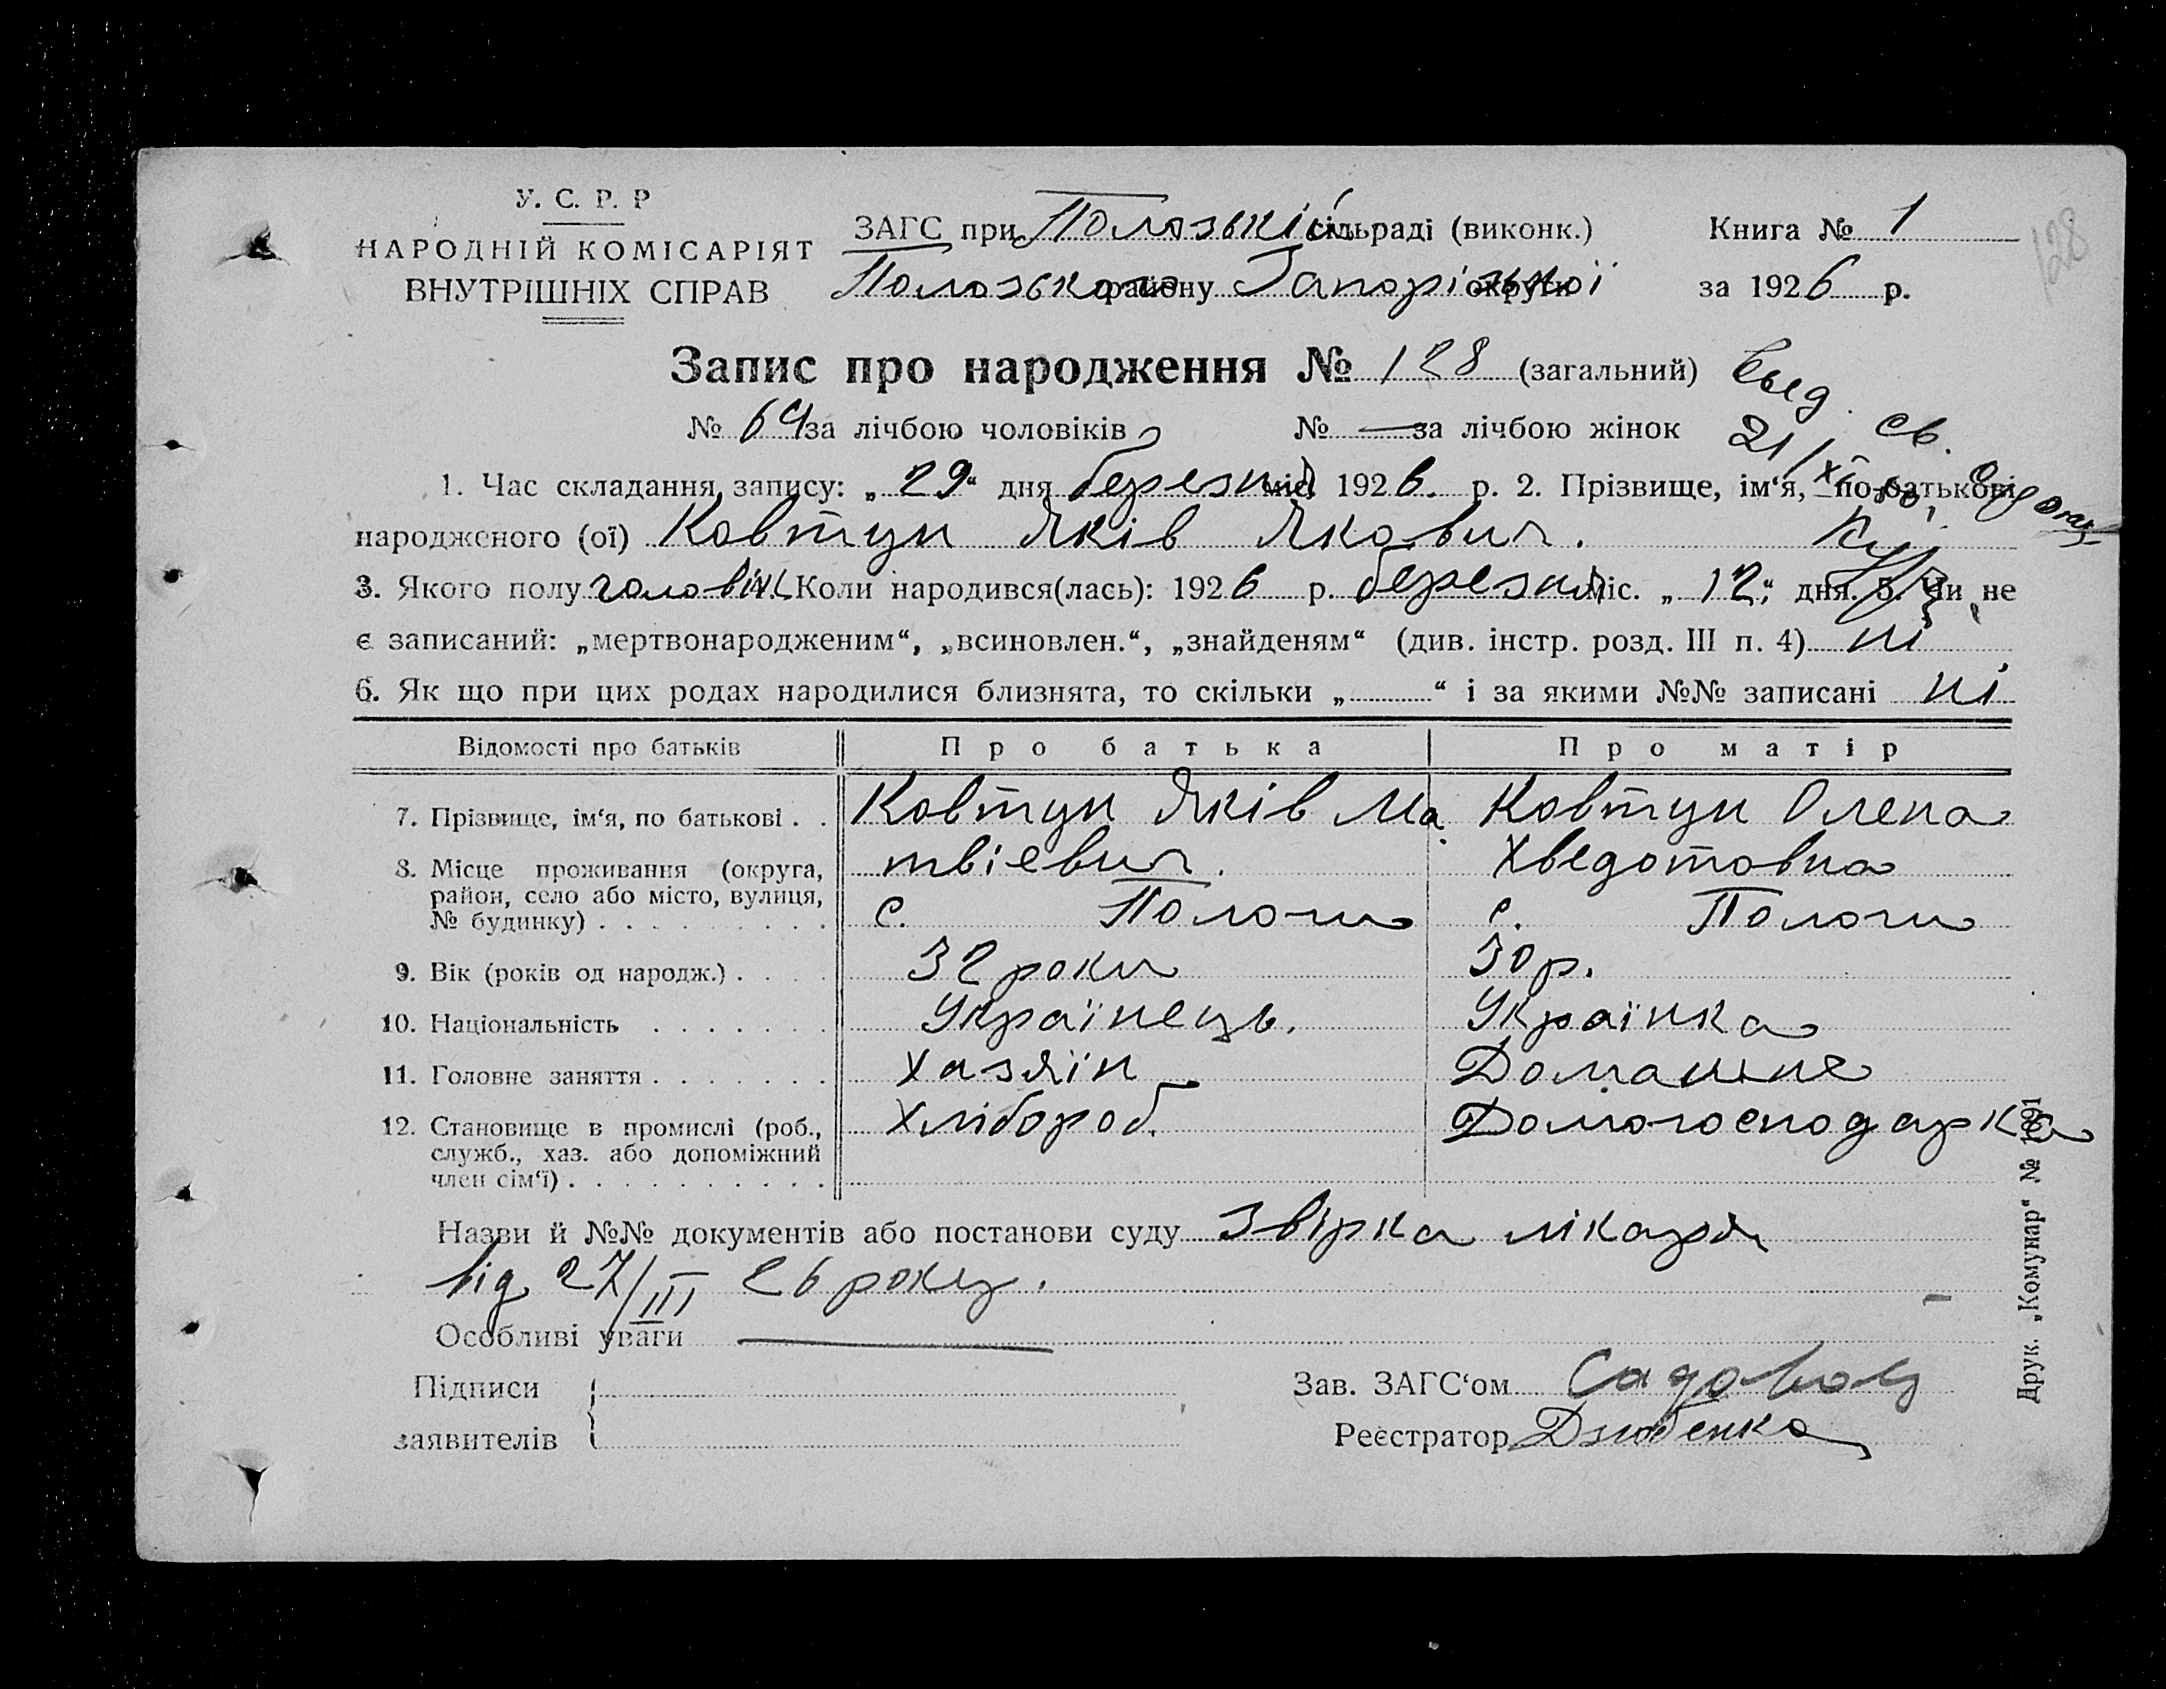 У. С. Р. Р
НАРОДНІЙ КОМІСАРІЯТ
ВНУТРІШНІХ СПРАВ
ЗАГС при Полозькій сільраді (виконк.)
Полозького району Запорізької округи
Книга № 1
за 1926 р.
128
Запис про народження № 128 (загальний)
№ 64 за лічбою чоловіків № — за лічбою жінок
Выд. св.
21/XI
1. Час складання запису: „29“ дня березня міс. 1926. р. 2. Прізвище, ім‘я, по-батькові
народженого (ої) Ковтун Яків Якович.
3. Якого полу чоловіч. 4. Коли народився(лась): 1926 р. березня міс. „12“ дня. 5. Чи не
є записаний: „мертвонародженим“, „всиновлен.“, „знайденям“ (див. інстр. розд. III п. 4) ні
6. Як що при цих родах народилися близнята, то скільки „ “ і за якими №№ записані ні
Відомості про батьків Про батька Про матір
7. Прізвище, ім‘я, по батькові . . Ковтун Яків Ма Ковтун Олена
твіевич. Хведотовна
8. Місце проживання (округа,
район, село або місто, вулиця,
№ будинку) . . . . . . . . . с. Пологи с. Пологи
9. Вік (років од народж.) . . . . 32 роки 30 р.
10. Національність . . . . . . . Українець. Українка
11. Головне заняття . . . . . . . Хазяїн Домашне
12. Становище в промислі (роб., Хлібороб. Домогосподарка
служб., хаз. або допоміжний
член сім‘ї) . . . . . . . . . .
Назви й №№ документів або постанови суду Звірка лікаря
від 27/III 26 року.
Особливі уваги —
Підписи
заявителів
Зав. ЗАГС‘ом
Реєстратор Дзюбенко
Друк. „Комунар“ № 1691